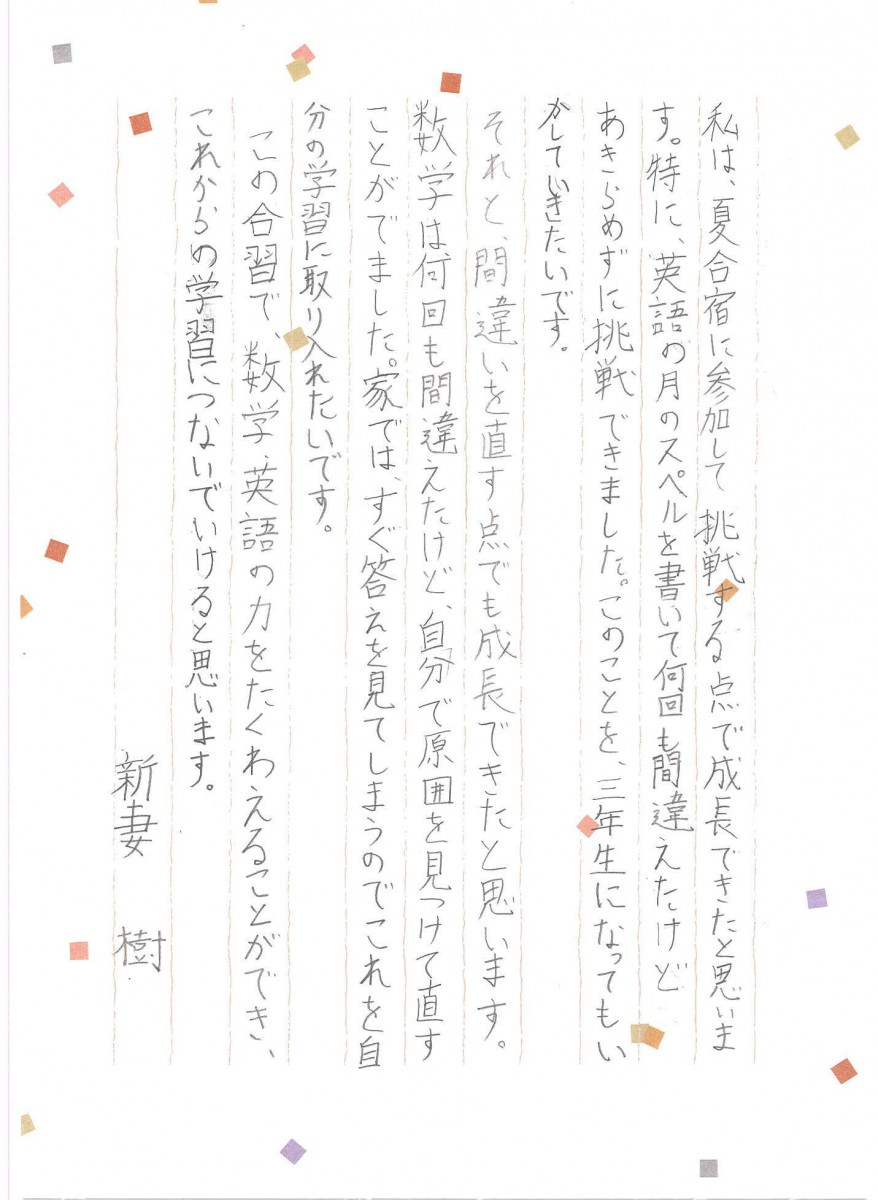 私は、夏合宿に参加して挑戦する点で成長できたと思いま
す。特に、英語の月のスペルを書いて何回も間違えたけど
あきらめずに挑戦できました。このことを、三年生になってもい
かしていきたいです。
それと、間違いを直す点でも成長できたと思います。
数学は何回も間違えたけど、自分で原囲を見つけて直す
ことがでました。家では、すぐ答えを見てしまうのでこれを自
分の学習に取り入れたいです。
この合習で、数学、英語の力をたくわえることができ、
これからの学習につないでいけると思います。
新妻 樹